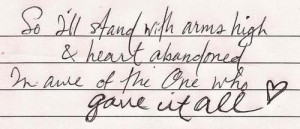 So I'll stand with arms high
& heart abandoned
In awe of the One who
gave it all